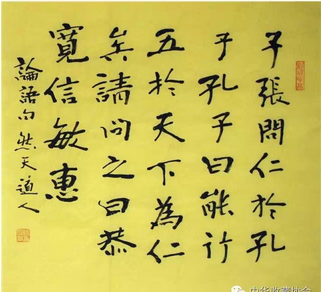 子張問仁於孔
子孔子曰能行
五於天下為仁
矣請問之曰恭
寬信敏惠
論語句然天道人
中华收藏协会